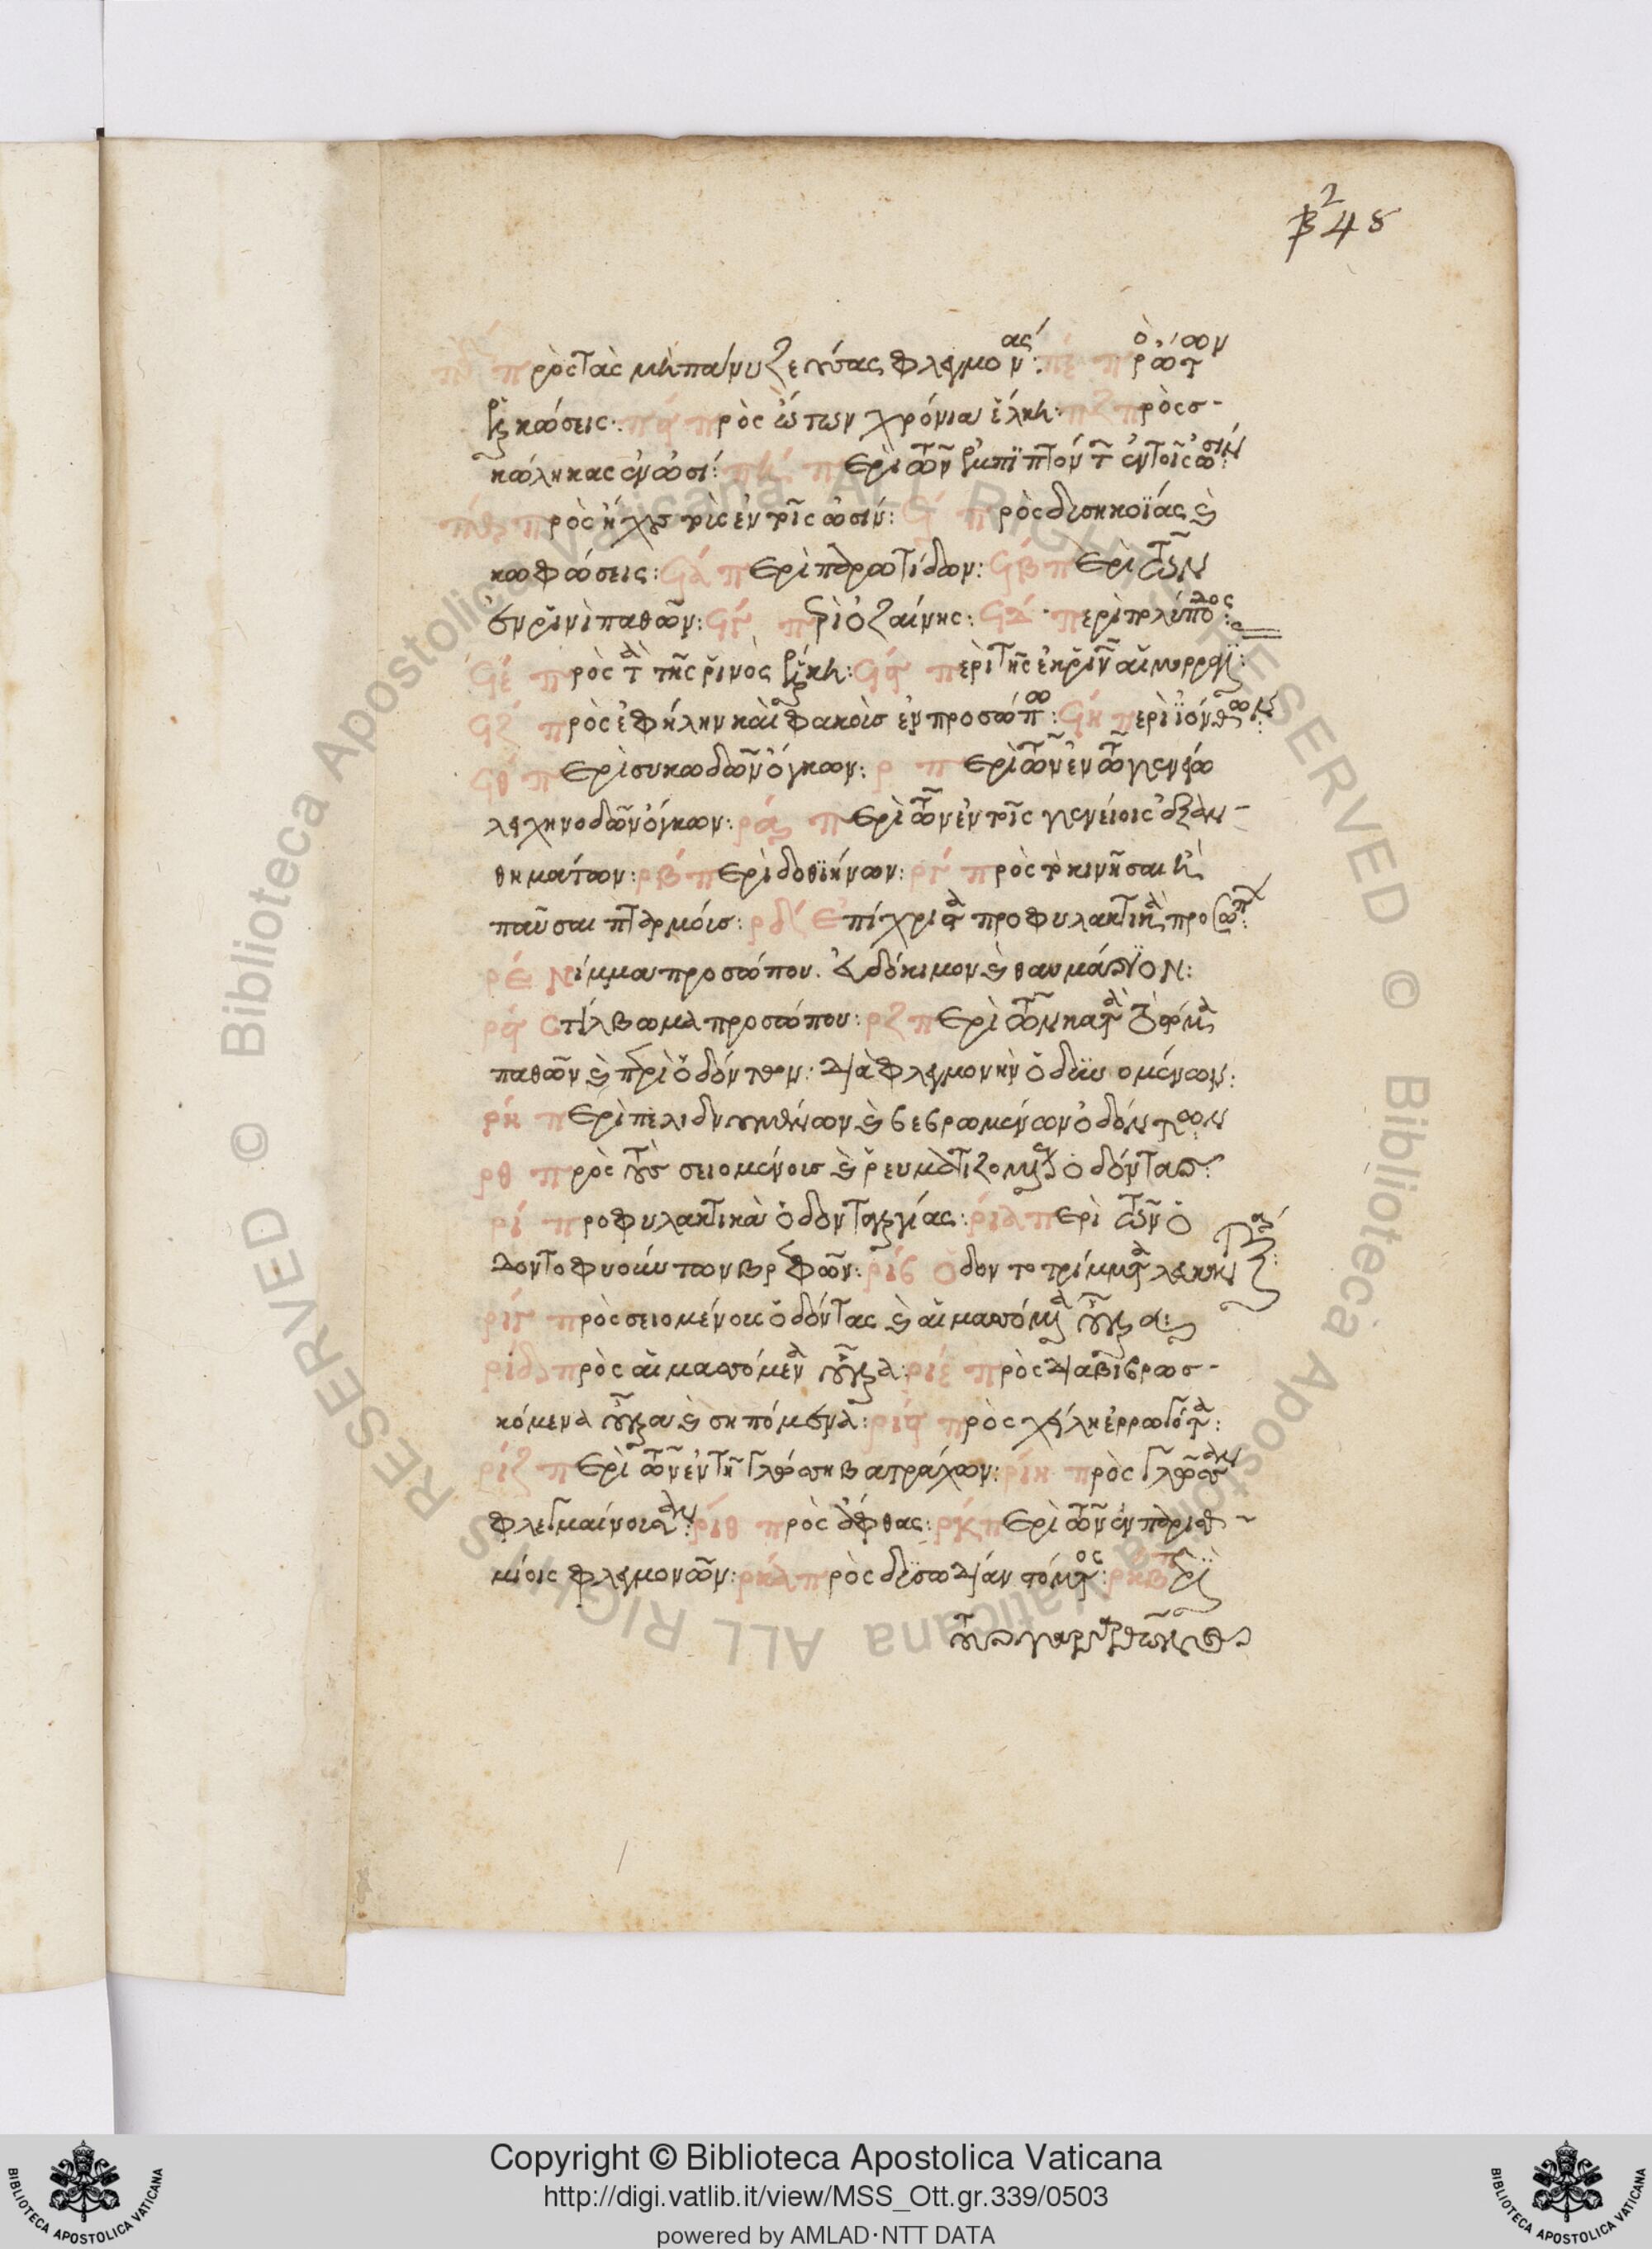 248
πρὸς τὰς μὴ παρυζούσας φλεγμονάς: πε πρὸς ὤτων
ἑλκώσεις: πς πρὸς ὤτων χρόνια ἕλκη: πζ πρὸς σ-
κώληκας ἐν ὠσί: πη περὶ τῶν ἐμπιπτόντ ἐν τοῖς ὠσίν:
πθ πρὸς ἤχους τοὺς ἐν τοῖς ὠσίν: ϟ πρὸς δυσηκοΐας καὶ
κωφώσεις: ϟα περὶ παρωτίδων: ϟβ περὶ τῶν
ἐν ῥινὶ παθῶν: ϟγ περὶ ὀζαίνης: ϟδ περὶ πολύποδος:
ϟε πρὸς τὰ τῆς ῥινὸς ἕλκη: ϟς περὶ τῆς ἐκ ῥινῶν αἱμορραγί:
ϟζ πρὸς ἐφήλην καὶ φακοὺς ἐν προσώπω: ϟη περὶ ἰόνθων:
ϟθ περὶ συκωδῶν ὄγκων: ρ περὶ τῶν ἐν τῶ γενείω
λειχηνοδῶν ὄγκων: ρα περὶ τῶν ἐν τοῖς γενείοις ἐξαν-
θημάτων: ρβ περὶ δοθιήνων: ργ πρὸς τὸ κινῆσαι ἢ
παῦσαι πταρμούς: ρδ ἐπίχριστα προφυλακτικὰ προσώπ:
ρε Νίμμα προσώπου. εὐδόκιμον καὶ θαυμάσιον:
ρς στίλβωμα προσώπου: ρζ περὶ τῶν κατὰ τὸ στόμα
παθῶν καὶ περὶ ὀδόντων: διὰ φλεγμονὴν ὀδυνωμένων:
ρη περὶ πελιδνουμένων καὶ βεβρωμένων ὀδόντων
ρθ πρὸς τοὺς σειομένους καὶ ῥευματιζομένους ὀδόντας:
ρι προφυλακτικὰ ὀδονταλγίας: ρια περὶ τῶν ὀ
δοντοφυούντων βρεφῶν: ριβ ὀδοντοτρίμματα λευκ
ριγ πρὸς σειομένους ὀδόντας καὶ αἱμασσόμενα οὖλα:
ριδ πρὸς αἱμασσόμενα οὖλα: ριε πρὸς διαβιβρωσ-
κόμενα οὖλα καὶ σηπόμενα: ρις πρὸς χείλη ἐρρωγότα:
ριζ περὶ τῶν ἐν τῆ γλώσση βατράχων: ριη πρὸς γλῶσσαν
φλεγμαίνουσαν: ριθ πρὸς ἄφθας: ρκ περὶ τῶν ἐν παρισθ-
μίοις φλεγμονῶν: ρκα πρὸς δυσωδίαν στόματος: ρκβ περὶ
Copyright © Biblioteca Apostolica Vaticana
http://digi.vatlib.it/view/MSS_Ott.gr.339/0503
powered by AMLAD·NTT DATA